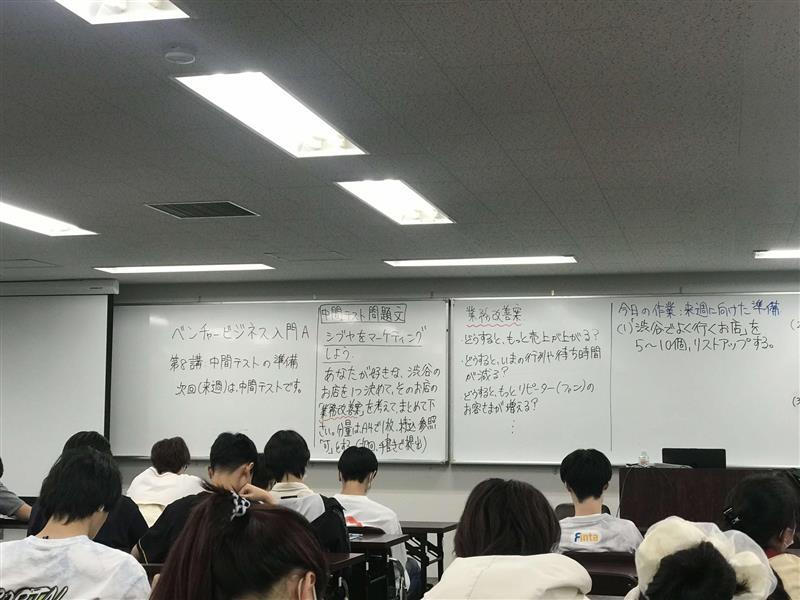 ベンチャービジネス入門A
第8講 中間テストの準備
次回(来週)は、中間テストです。
中間テスト問題文
シブヤをマーケティング
しよう。
あなたが好きな、渋谷の
お店を1つ決めて、そのお店の
「業務改善案」を考えて、まとめて下
さい。分量は、A4で1枚、持込、参照
「可」とする。(次回、手書きで提出)
業務改善案
・どうすると、もっと売上が上がる?
・どうすると、いまの行列や待ち時間
が減る?
・どうすると、もっとリピーター(ファン)の
お客さまが増える?
⋮
今日の作業:来週に向けた準備
(1)「渋谷でよく行くお店」を
5〜10個、リストアップする。
(2
(3
Finta